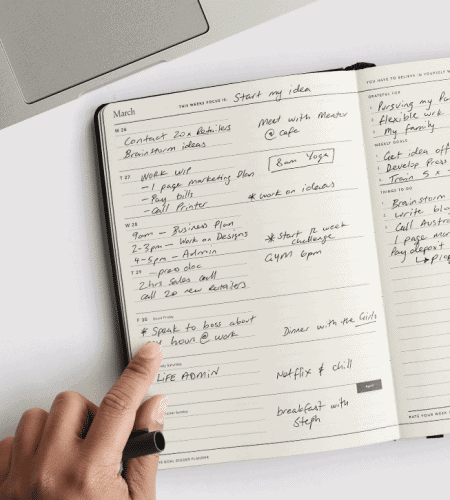 March
THIS WEEKS FOCUS IS
Start my idea
M 26
Contact 20x Retailers
Brainstorm ideas
Meet with Mentor
@ cafe
T 27
WORK WIP
- 1 page marketing Plan
- Pay bills
- Call Printer
8am Yoga
* work on ideas
W 28
9am - Business Plan
2-3pm - Work on Designs
4-5pm - Admin
* Start 12 week
challenge
Gym 6pm
T 29
2hrs Sales call
Call 20 new Retailers
F 30 Good Friday
* Speak to boss about
hours @ work
Dinner with the Girls
Saturday
LIFE ADMIN
Netflix & chill
April
Sunday
breakfast with
Steph
GOAL DIGGER PLANNER
YOU HAVE TO BELIEVE IN YOURSELF
GRATEFUL FOR
1. Pursuing my
2. Flexible work
3. My family
WEEKLY GOALS
1. Get idea off
2. Develop Press
3. Train 5 x
THINGS TO DO
Brainstorm
write
Call
1 page
Pay deposit
RATE YOUR WEEK